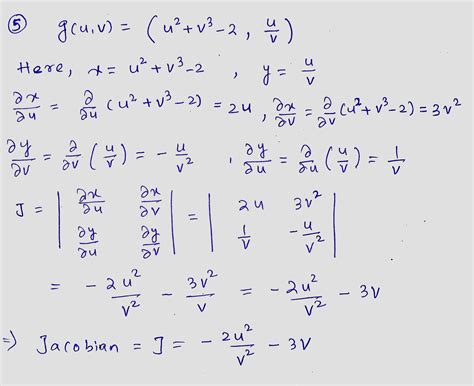 ⑤ g(u,v) = (u² + v³ - 2, u/v)
Here, x = u² + v³ - 2 , y = u/v
∂x/∂u = ∂/∂u (u² + v³ - 2) = 2u , ∂x/∂v = ∂/∂v (u² + v³ - 2) = 3v²
∂y/∂v = ∂/∂v (u/v) = - u/v² , ∂y/∂u = ∂/∂u (u/v) = 1/v
J = | ∂x/∂u ∂x/∂v ; ∂y/∂u ∂y/∂v | = | 2u 3v² ; 1/v -u/v² |
= - 2u²/v² - 3v²/v = - 2u²/v² - 3v
⇒ Jacobian = J = - 2u²/v² - 3v